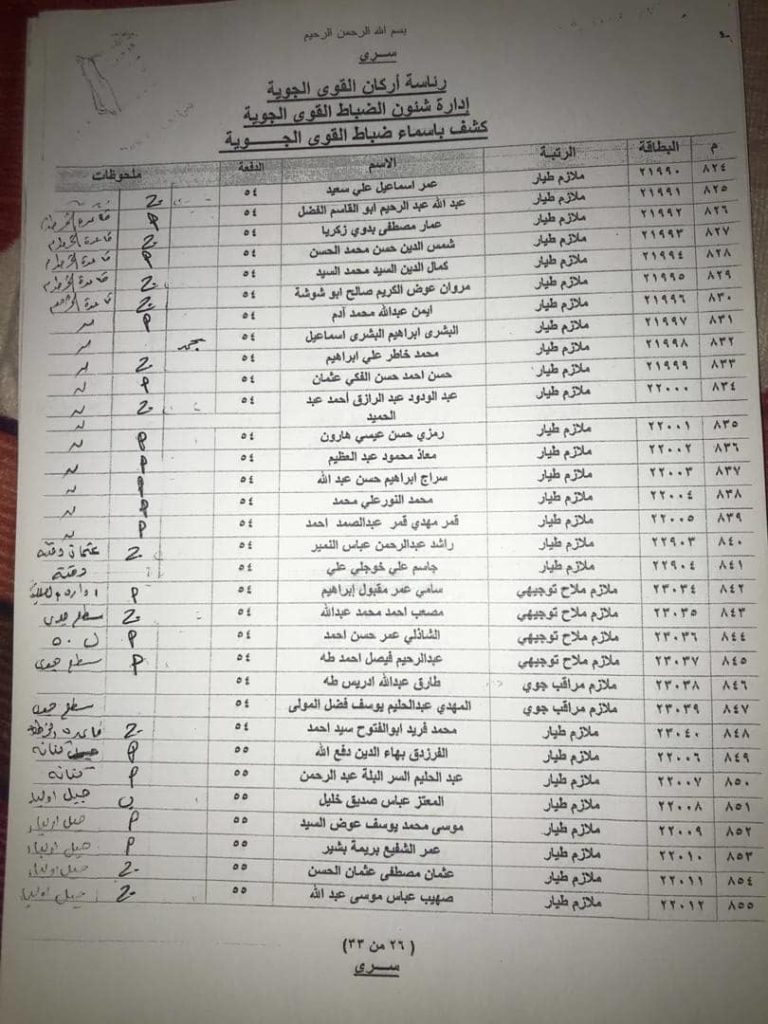 ٤
بسم الله الرحمن الرحيم
ســري
رئاسة أركان القوى الجوية
إدارة شئون الضباط القوى الجوية
كشف باسماء ضباط القوى الجـــوية
م البطاقة الرتبة الاسم الدفعة ملحوظات
٨٢٤ ٢١٩٩٠ ملازم طيار عمر اسماعيل علي سعيد ٥٤
٨٢٥ ٢١٩٩١ ملازم طيار عبد الله عبد الرحيم ابو القاسم الفضل ٥٤
٨٢٦ ٢١٩٩٢ ملازم طيار عمار مصطفى بدوي زكريا ٥٤
٨٢٧ ٢١٩٩٣ ملازم طيار شمس الدين حسن محمد الحسن ٥٤
٨٢٨ ٢١٩٩٤ ملازم طيار كمال الدين السيد محمد السيد ٥٤
٨٢٩ ٢١٩٩٥ ملازم طيار مروان عوض الكريم صالح ابو شوشة ٥٤
٨٣٠ ٢١٩٩٦ ملازم طيار ايمن عبدالله محمد آدم ٥٤
٨٣١ ٢١٩٩٧ ملازم طيار البشرى ابراهيم البشرى اسماعيل ٥٤
٨٣٢ ٢١٩٩٨ ملازم طيار محمد خاطر علي ابراهيم ٥٤
٨٣٣ ٢١٩٩٩ ملازم طيار حسن احمد حسن الفكي عثمان ٥٤
٨٣٤ ٢٢٠٠٠ ملازم طيار عبد الودود عبد الرازق أحمد عبد الحميد ٥٤
٨٣٥ ٢٢٠٠١ ملازم طيار رمزي حسن عيسي هارون ٥٤
٨٣٦ ٢٢٠٠٢ ملازم طيار معاذ محمود عبد العظيم ٥٤
٨٣٧ ٢٢٠٠٣ ملازم طيار سراج ابراهيم حسن عبد الله ٥٤
٨٣٨ ٢٢٠٠٤ ملازم طيار محمد النورعلي محمد ٥٤
٨٣٩ ٢٢٠٠٥ ملازم طيار قمر مهدي قمر عبدالصمد احمد ٥٤
٨٤٠ ٢٢٩٠٣ ملازم طيار راشد عبدالرحمن عباس النمير ٥٤ عثمان دقنه
٨٤١ ٢٢٩٠٤ ملازم طيار جاسم علي خوجلي علي ٥٤ دقنه
٨٤٢ ٢٣٠٣٤ ملازم ملاح توجيهي سامي عمر مقبول إبراهيم ٥٤
٨٤٣ ٢٣٠٣٥ ملازم ملاح توجيهي مصعب احمد محمد عبدالله ٥٤
٨٤٤ ٢٣٠٣٦ ملازم ملاح توجيهي الشاذلي عمر حسن احمد ٥٤
٨٤٥ ٢٣٠٣٧ ملازم ملاح توجيهي عبدالرحيم فيصل احمد طه ٥٤
٨٤٦ ٢٣٠٣٨ ملازم مراقب جوي طارق عبدالله ادريس طه ٥٤
٨٤٧ ٢٣٠٣٩ ملازم مراقب جوي المهدي عبدالحليم يوسف فضل المولى ٥٤
٨٤٨ ٢٣٠٤٠ ملازم طيار محمد فريد ابوالفتوح سيد احمد ٥٤
٨٤٩ ٢٢٠٠٦ ملازم طيار الفرزدق بهاء الدين دفع الله ٥٥ كنانه
٨٥٠ ٢٢٠٠٧ ملازم طيار عبد الحليم السر البلة عبد الرحمن ٥٥ كنانه
٨٥١ ٢٢٠٠٨ ملازم طيار المعتز عباس صديق خليل ٥٥ جبل اولياء
٨٥٢ ٢٢٠٠٩ ملازم طيار موسى محمد يوسف عوض السيد ٥٥ جبل اولياء
٨٥٣ ٢٢٠١٠ ملازم طيار عمر الشفيع بريمة بشير ٥٥ جبل اولياء
٨٥٤ ٢٢٠١١ ملازم طيار عثمان مصطفى عثمان الحسن ٥٥ جبل اولياء
٨٥٥ ٢٢٠١٢ ملازم طيار صهيب عباس موسى عبد الله ٥٥ جبل اولياء
(٢٦ من ٣٣)
ســري